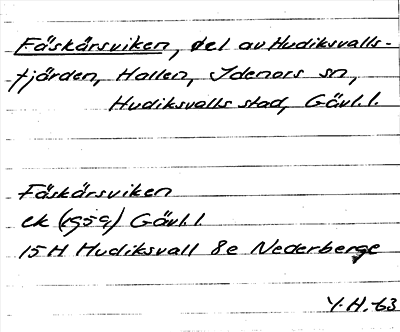 Fäskärsviken, del av Hudiksvalls-
fjärden, Hallen, Idenors sn,
Hudiksvalls stad, Gävl.l.
Fäskärsviken
ek (1959) Gävl.l
15H Hudiksvall 8e Nederberge
Y.H.-63